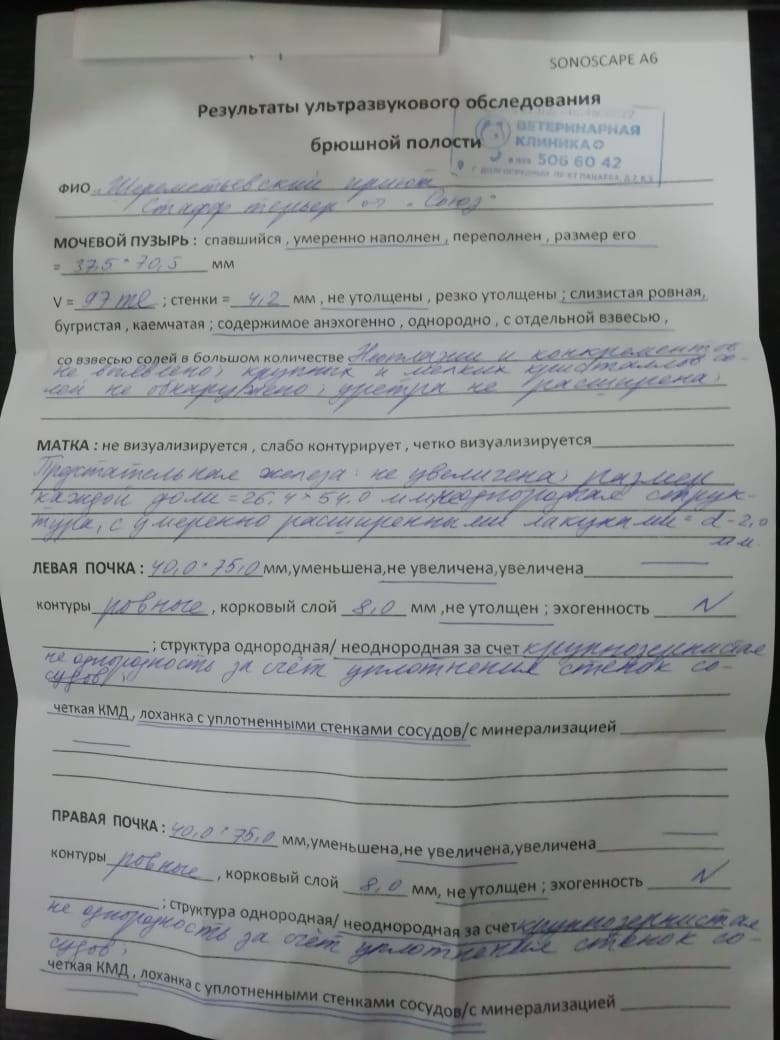 SONOSCAPE A6
Результаты ультразвукового обследования
брюшной полости
ВЕТЕРИНАРНАЯ
КЛИНИКА
506 60 42
ФИО „Шереметьевский приют
Стафф терьер „Союз"
МОЧЕВОЙ ПУЗЫРЬ : спавшийся , умеренно наполнен , переполнен , размер его
= 37,5 * 70,5 мм
V = 97 ml ; стенки = 4,2 мм , не утолщены , резко утолщены ; слизистая ровная,
бугристая , каемчатая ; содержимое анэхогенно , однородно , с отдельной взвесью ,
со взвесью солей в большом количестве Неоплазии и конкрементов
не выявлено; крупных и мелких кристаллов со-
лей не обнаружено; уретра не расширена;
МАТКА : не визуализируется , слабо контурирует , четко визуализируется
Предстательная железа: не увеличена; размер
каждой доли = 26,4 * 54,0 мм; неоднородная струк-
тура, с умеренно расширенными лакунами = d - 2,0
мм.
ЛЕВАЯ ПОЧКА : 40,0 * 75,0 мм,уменьшена,не увеличена,увеличена
контуры ровные , корковый слой 8,0 мм ,не утолщен ; эхогенность N
; структура однородная/ неоднородная за счет крупнозернистая
не однородность за счёт уплотнения стенок со-
судов;
четкая КМД , лоханка с уплотненными стенками сосудов/с минерализацией
ПРАВАЯ ПОЧКА : 40,0 * 75,0 мм,уменьшена,не увеличена,увеличена
контуры ровные , корковый слой 8,0 мм, не утолщен ; эхогенность N
; структура однородная/ неоднородная за счет крупнозернистая
не однородность за счёт уплотнения стенок со-
судов;
четкая КМД , лоханка с уплотненными стенками сосудов/с минерализацией